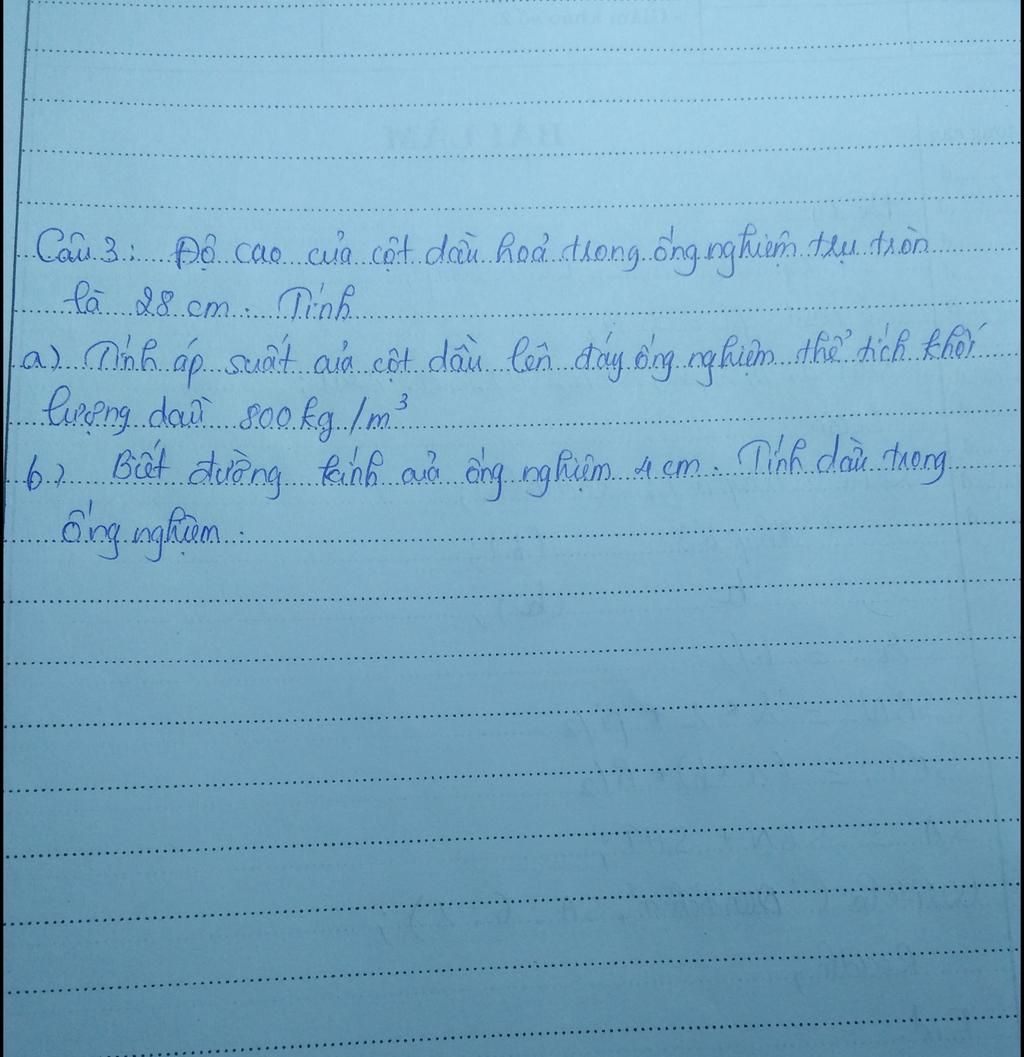 Câu 3: Độ cao của cột dầu hoả trong ống nghiệm trụ tròn
là 28 cm. Tính
a) Tính áp suất của cột dầu lên đáy ống nghiệm thể tích khối
lượng dầu 800 kg/m³
b) Biết đường kính của ống nghiệm 4 cm. Tính dầu trong
ống nghiệm.